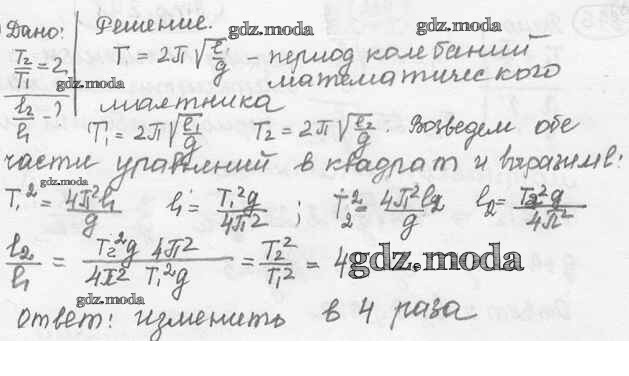 Дано: Решение. gdz.moda gdz.moda
T₂/T₁ = 2 T = 2π√(l/g) – период колебаний
gdz.moda математического
l₂/l₁ - ? маятника
T₁ = 2π√(l₁/g) T₂ = 2π√(l₂/g). Возведем обе
части уравнений в квадрат и выразим l:
gdz.moda
T₁² = 4π²l₁/g l₁ = T₁²g/4π² ; T₂² = 4π²l₂/g l₂ = T₂²g/4π²
l₂/l₁ = T₂²g 4π²/4π² T₁²g = T₂²/T₁² = 4 gdz.moda
gdz.moda
Ответ: изменить в 4 раза